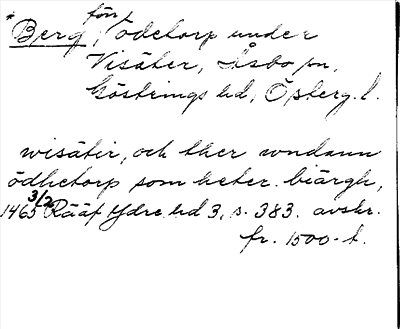 * Berg, förr ödetorp under
Visäter, Åsbo sn,
Göstrings hd, Östergl.
wisätir, och ther wndann
ödhetorp som heter biärgh,
1465 3/2 Rääf Ydre hd 3, s. 383. avskr.
fr. 1500-t.